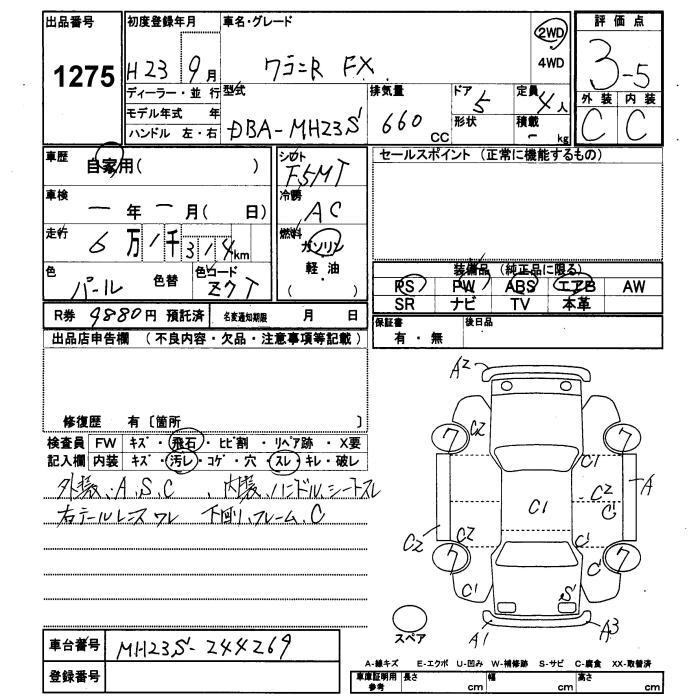 出品番号 初度登録年月 車名・グレード 2WD 評価点
1275 H23 9月 ワゴンR FX 4WD 3-5
ディーラー・並行 型式 排気量 ドア 定員 外装 内装
モデル年式 年 5 4人 C C
ハンドル 左・右 DBA-MH23S 660cc 形状 積載 - kg
車歴 自家用( ) シフト F5MT セールスポイント (正常に機能するもの)
車検 ー年ー月( 日) 冷房 AC
走行 6万1千314km 燃料 ガソリン
軽・油
( )
色 パール 色替 色コード Z7T
装備品 (純正品に限る)
PS PW ABS エアB AW
SR ナビ TV 本革
R券 9880円 預託済 名変通知期限 月 日
保証書 後日品
有・無
出品店申告欄 (不良内容・欠品・注意事項等記載)
修復歴 有〔箇所 〕
検査員 FW キズ・飛石・ヒビ割・リペア跡・X要
記入欄 内装 キズ・汚レ・コゲ・穴・スレ・キレ・破レ
外装、A、S、C 、内装、ハンドル、シートスレ
右テールレンズワレ 下廻リ、フレーム、C
A2
C2
ワ ワ
C1
A
C2
C1
C'
C2 C2 C'
ワ ワ
C' C'
S'
A1 A3
スペア
車台番号 MH23S-244269
登録番号
A-線キズ E-エクボ U-凹み W-補修跡 S-サビ C-腐食 XX-取替済
車庫証明用参考 長さ cm 幅 cm 高さ cm